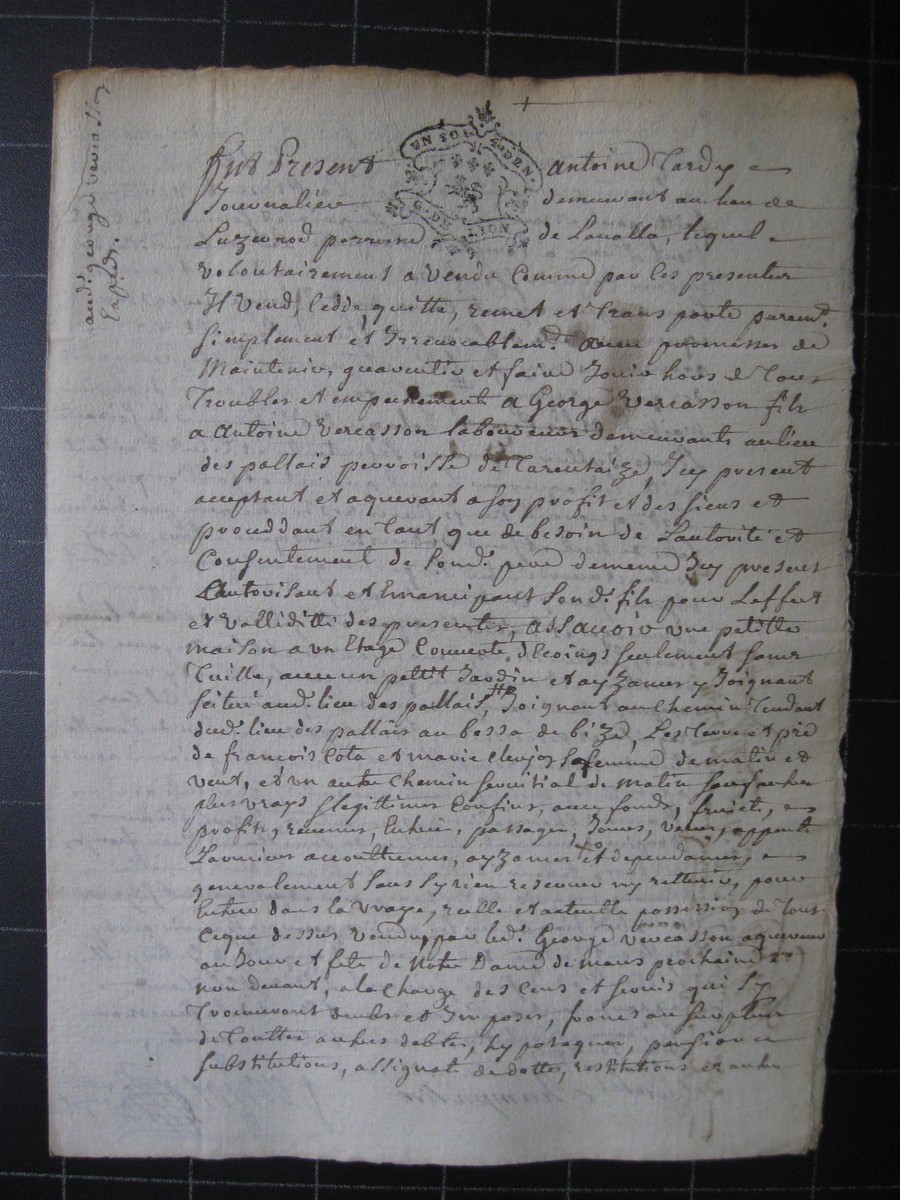 aud. george vercasson
Expedié.
UN SOL 4. DEN
G. DE LION
fut Present Antoine Tardy
Journalier demeurant au lieu de
Luzernod perroisse de Lavalla, lequel
volontairement a vendu Comme par les presentes
Il vend, Cedde, quitte, remet et transporte purem.t
simplement et Irrevocablem.t avec promesses de
Maintenir, guarentir et faire Jouir hors de tous
Troubles et empechement a George Vercasson fils
a Antoine Vercasson laboureurs demeurants au lieu
des pallais perroisse de Tarentaize, Icy present
acceptant et aquerant a son profit et des siens et
proceddant en tant que de besoin de Lautorité et
Consentement de Sond. pere de meme Icy present
Lautorisant et Emancipant Sond. fils pour Leffect
et valliditté des presentes, assavoir une petitte
maison a un Etage Couverte d'Ecoings seulement sans
Tuille, avec un pettit Jardin et ayzances y Joignant
scitué aud. lieu des pallais, Joignant au Chemin tendant
dud. lieu des pallais au bessa de bize, Les terre et pré
de francois Cota et marie sa femme de matin et
vent, et un autre Chemin servitial de matin sauf autres
plus vrays & legittimes Confins, avec fonds, fruicts,
profits, revenus, Entrées, passages, Issues, appart.
accouttumées, ayzances et dependances,
generalement sans sy rien reserver ny rettenir, pour
Entrer dans la vraye, reelle et actuelle possession de tout
Ceque dessus vendu, par led. George vercasson aquereur
au Jour et fete de Notre Dame de mars prochaine &
non devant, a la Charge des Cens et servis qui sy
Trouveront deubs et Imposés, francs au surplus
de touttes autres debtes, hypoteques, pensions
substitutions, assignat de dotte, restitutions et autres